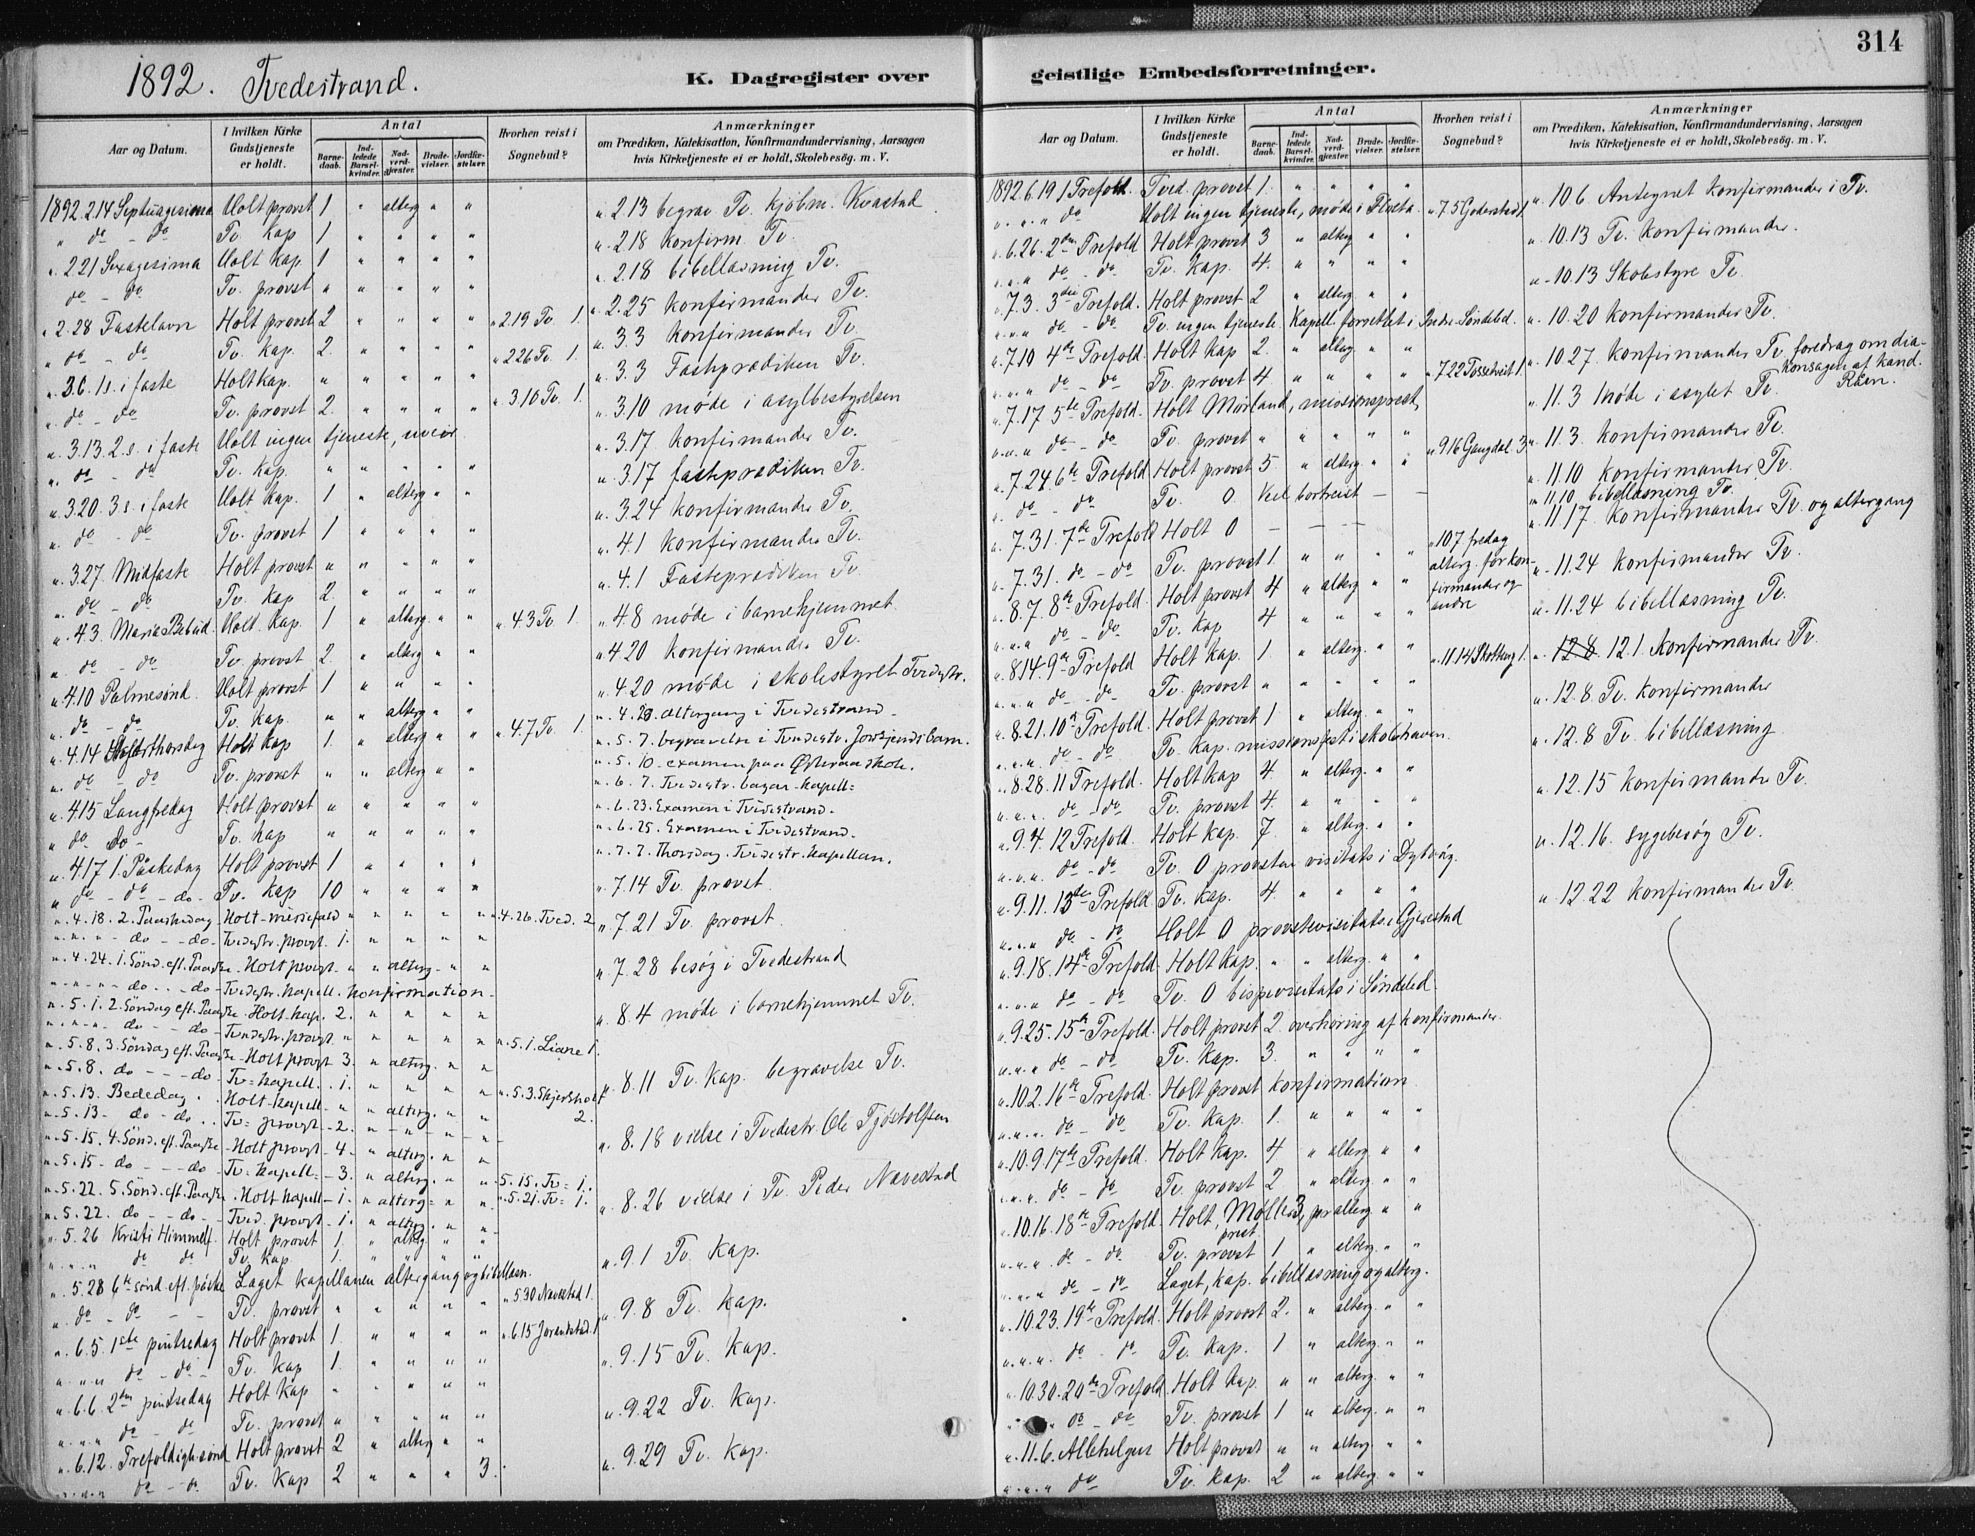 314
1892. Tvedestrand.
K. Dagregister over
geistlige Embedsforretninger.
Aar og Datum.
I hvilken Kirke Gudstjeneste er holdt.
Antal
Barnedaab.
Indledede Barselkvinder.
Nadverdgjester.
Brudevielser.
Jordfæstelser.
Hvorhen reist i Sognebud?
Anmærkninger
om Prædiken, Katekisation, Konfirmandundervisning, Aarsagen
hvis Kirketjeneste ei er holdt, Skolebesøg. m. V.
1892. 2 14 Septuagesima Holt provst 1 " alterg " "
" do - do Tv. Kap 1 " " " "
". 2 21 Sexagesima Holt Kap. 1 " " " "
do - do Tv. provst " " " " "
" 2.28 Fastelavn Holt provst 2 " " " " " 2 19 Tv. 1.
" do - do Tv. Kap. 2. " " " " " 2 26 Tv. 1.
". 3.6. 1 s. i faste Holt kap. " " " " "
". do - do Tv. provst 2. " " " " " 3.10 Tv. 1.
". 3.13. 2 s. i faste Holt ingen tjeneste, uveir
". do - do Tv. Kap. " " " " "
". 3.20. 3 s. i faste Holt Kap. 1 " alterg " "
". do - do Tv. provst 1 " " " "
". 3 27. Midfaste Holt provst " " " " "
". do - do Tv. Kap 2. " " " "
". 4 3. Mariæ Bebud. Holt. Kap. 1 " alterg. " " " 4 3 Tv. 1.
" do - do Tv. provst 2. " alterg " "
". 4 10 Palmesønd. Holt provst 1 " " " "
". do - do Tv. Kap. " " alterg " "
". 4.14 Skjærthorsdag Holt Kap 1. " alterg " " " 4.7 Tv. 1
". do - do Tv. provst " " alterg " "
". 4 15 Langfredag Holt provst " " " " "
" do do - Tv. Kap " " " " "
". 4 17 1. Påskedag Holt provst 1 " " " "
" do - do - do - Tv. Kap 10 " " " "
". 4.18. 2. Paaskedag Holt - messefald " " " " " " 4.26. Tved. 2
" " " - do - - do - Tvedestr. provst. 1. " " " "
". 4.24. 1. Sønd. eft. Paaske - Holt provst - " " alterg. " "
" " " - do . . - do - Tvedestr. kapell. Konfirmation -
". 5.1. 2. Søndag eft. Paaske - Holt - kap. 2. " " " "
" " " - do - - do - Tvedestr. provst. " " " " " ". 5.1. Liane 1.
". 5.8. 3. Søndag eft. Paaske - Holt provst 3. " alterg. " "
". 5.8. do - - - do - Tv = kapell. . 1. " " " "
". 5.13. Bededag . . Holt - kapell - " " alterg. " "
". 5.13 - do - do . . Tv = provst - 2. " " " " 2.
". 5.15. 4. Sønd. eft. Paaske - Holt provst - 4 - " alterg. " "
". 5.15 - do - - - do - Tv - kapell. - 3. " alterg. " " " 5.15. Tv = 1.
". 5.22. 5. Sønd. eft. Paaske . Holt kapell - 1. " alterg = " " " 5.21. Tv = 1.
". 5.22. do - - do - Tved. provst - 1. " alterg. " "
". 5.26 Kristi Himmelf. Holt provst 1 " alterg " "
" " " do do Tv. Kap 1. " " " "
". 5.28 6te sønd. eft. påske Laget kapellanen altergang og bibellæsn.
". do - do - - Tv. provst " " " " " " 5 30 Navestad 1.
". 6.5. 1ste pintsedag Holt provst 1. " " " " " 6.15
" " " do - do Tv. Kap 1. " " " "
". 6.6. 2den pintsedag Holt Kap " " " " "
" " " do - do Tv. provst " " " " "
". 6.12. Trefoldigh. sønd Holt provst 2 " alterg " "
" " " do - do Tv. Kap 2 " " " 3.
". 2 13 begrav Tv. Kjøbm. Kvastad
". 2 18 Konfirm. Tv.
". 2.18 bibellæsning Tv.
". 2.25 Konfirmander Tv.
". 3.3 Konfirmander Tv.
". 3.3 Fasteprædiken Tv.
". 3.10 møde i asylbestyrelsen
". 3.17 Konfirmander Tv.
". 3.17 fasteprædiken Tv.
". 3.24 konfirmander Tv.
". 4.1 Konfirmander Tv.
". 4.1 Fasteprædiken Tv.
" 4 8 møde i barnehjemmet
" 4 20 Konfirmander Tv.
" 4.20 møde i skolestyret Tvedestr.
". 4.20. altergang i Tvedestrand -
". 5.7. begravelse i Tvedestr. barn.
". 5.10 - examen paa Østeraa skole.
". 6.7. Tvedestr. bazar - kapell =
". 6.23. Examen i Tvedestrand.
". 6.25. Examen i Tvedestrand.
". 7.7. Thorsdag. Tvedestr. kapellan.
". 7.14 Tv. provst.
" 7.21 Tv. provst.
". 7.28 besøg i Tvedestrand
". 8.4 møde i barnehjemmet Tv.
". 8.11 Tv. Kap. begravelse Tv.
". 8.18 vielse i Tvedestr. Ole Tjøstolfsen
". 8.26 vielse i Tv. Peder Navestad
". 9.1 Tv. Kap.
". 9.8 Tv. Kap.
". 9.15 Tv. Kap.
". 9.22 Tv. Kap.
". 9.29 Tv. Kap.
Aar og Datum.
I hvilken Kirke Gudstjeneste er holdt.
Antal
Barnedaab.
Indledede Barselkvinder.
Nadverdgjester.
Brudevielser.
Jordfæstelser.
Hvorhen reist i Sognebud?
Anmærkninger
om Prædiken, Katekisation, Konfirmandundervisning, Aarsagen
hvis Kirketjeneste ei er holdt, Skolebesøg. m. V.
1892. 6.19 1 Trefold. Tved. provst 1. " " " "
" " " do Holt ingen tjeneste, møde i Flosta.
". 6.26. 2den Trefold Holt provst 3 " alterg " "
" " " do - do Tv. Kap. 4. " " " "
". 7.3. 3die Trefold. Holt provst 2 " alterg " "
" " " do - do Tv. ingen tjeneste. Kapell. forrettet i Indre Søndeled.
". 7.10 4de Trefold. Holt Kap 2. " alterg " "
" " " do - do Tv. provst 4 " " " " " 7.22 1
". 7.17 5te Trefold. Holt Mørland, missionsprest
" " " do - do Tv. provst " " " " "
". 7.24. 6te Trefold Holt provst 5. " alterg " " " 9.16 Gangdal 3
". do - do Tv. 0. Kal. bortreist - -
". 7.31. 7de Trefold Holt 0 - - - -
". 7.31. do - do Tv. provst 1. " " " " " 10 7 fredag alterg. for konfirmander og andre
". 8.7. 8de Trefold. Holt provst 4 " alterg " "
" " " do - do Tv. Kap 4 " " " "
". 8 14. 9de Trefold Holt Kap. 1. " alterg. " " " 11.14 Skotberg 1.
" " " do - do Tv. provst " " " " "
". 8.21. 10de Trefold. Holt provst 1 " alterg " "
" " " do - do Tv. Kap. missionsfest i skolehaven.
". 8.28. 11 Trefold. Holt Kap 4. " alterg. " "
" " " do - do Tv. provst 4. " " " "
". 9.4. 12 Trefold. Holt Kap. 7. " alterg. " "
" " " do - do Tv. 0 provsten visitats i Dybvåg.
". 9.11. 13de Trefold Tv. Kap. 4. " " " "
" " " do - do Holt 0 provstevisitats i Gjerestad
". 9.18. 14de Trefold. Holt Kap. " " alterg. " "
" " " do - do Tv. 0 bispevisitats i Søndeled.
". 9.25. 15de Trefold. Holt provst 2. overhøring af konfirmander.
" " " do - do Tv. Kap. 3. " " " "
". 10.2. 16de Trefold. Holt provst konfirmation
" " " do - do Tv. Kap. 1. " " " "
". 10.9. 17de Trefold. Holt Kap. 4 " alterg " "
" " " do - do Tv. provst 2 " alterg. " "
". 10.16. 18de Trefold. Holt, Møller, prest 3, " alterg " "
" " " do - do Tv. provst 1 " alterg. " "
" " " do - do Laget, kap. bibellæsning og alterg.
". 10.23. 19de Trefold. Holt provst 2. " alterg. " "
" " " do - do Tv. Kap. 1 " alterg. " "
". 10.30. 20de Trefold. Holt Kap. " " alterg. " "
" " " do - do Tv. provst 1 " alterg. " "
". 11.6. Allehelgen Holt provst " " alterg. " "
" " " do Tv. Kap. 2 " alterg. " "
". 10.6 Antegnet Konfirmander i Tv.
". 10.13 Tv. Konfirmander.
". 10.13 Skolestyre Tv.
". 10.20 Konfirmander Tv.
". 10.27. Konfirmander Tv. foredrag om diakonsagen af kand. Rêen.
". 11.3 Møde i asylet Tv.
". 11.3. Konfirmander Tv.
". 11.10 Konfirmander Tv.
". 11.10. bibellæsning Tv.
". 11.17 Konfirmander Tv. og altergang
". 11.24 Konfirmander Tv.
". 11.24 bibellæsning Tv.
". 12.8 12.1. Konfirmander Tv.
". 12.8 Tv. Konfirmander
". 12.8 Tv. bibellæsning
". 12.15 Konfirmander Tv.
". 12.16. sygebesøg Tv.
". 12.22 Konfirmander Tv.